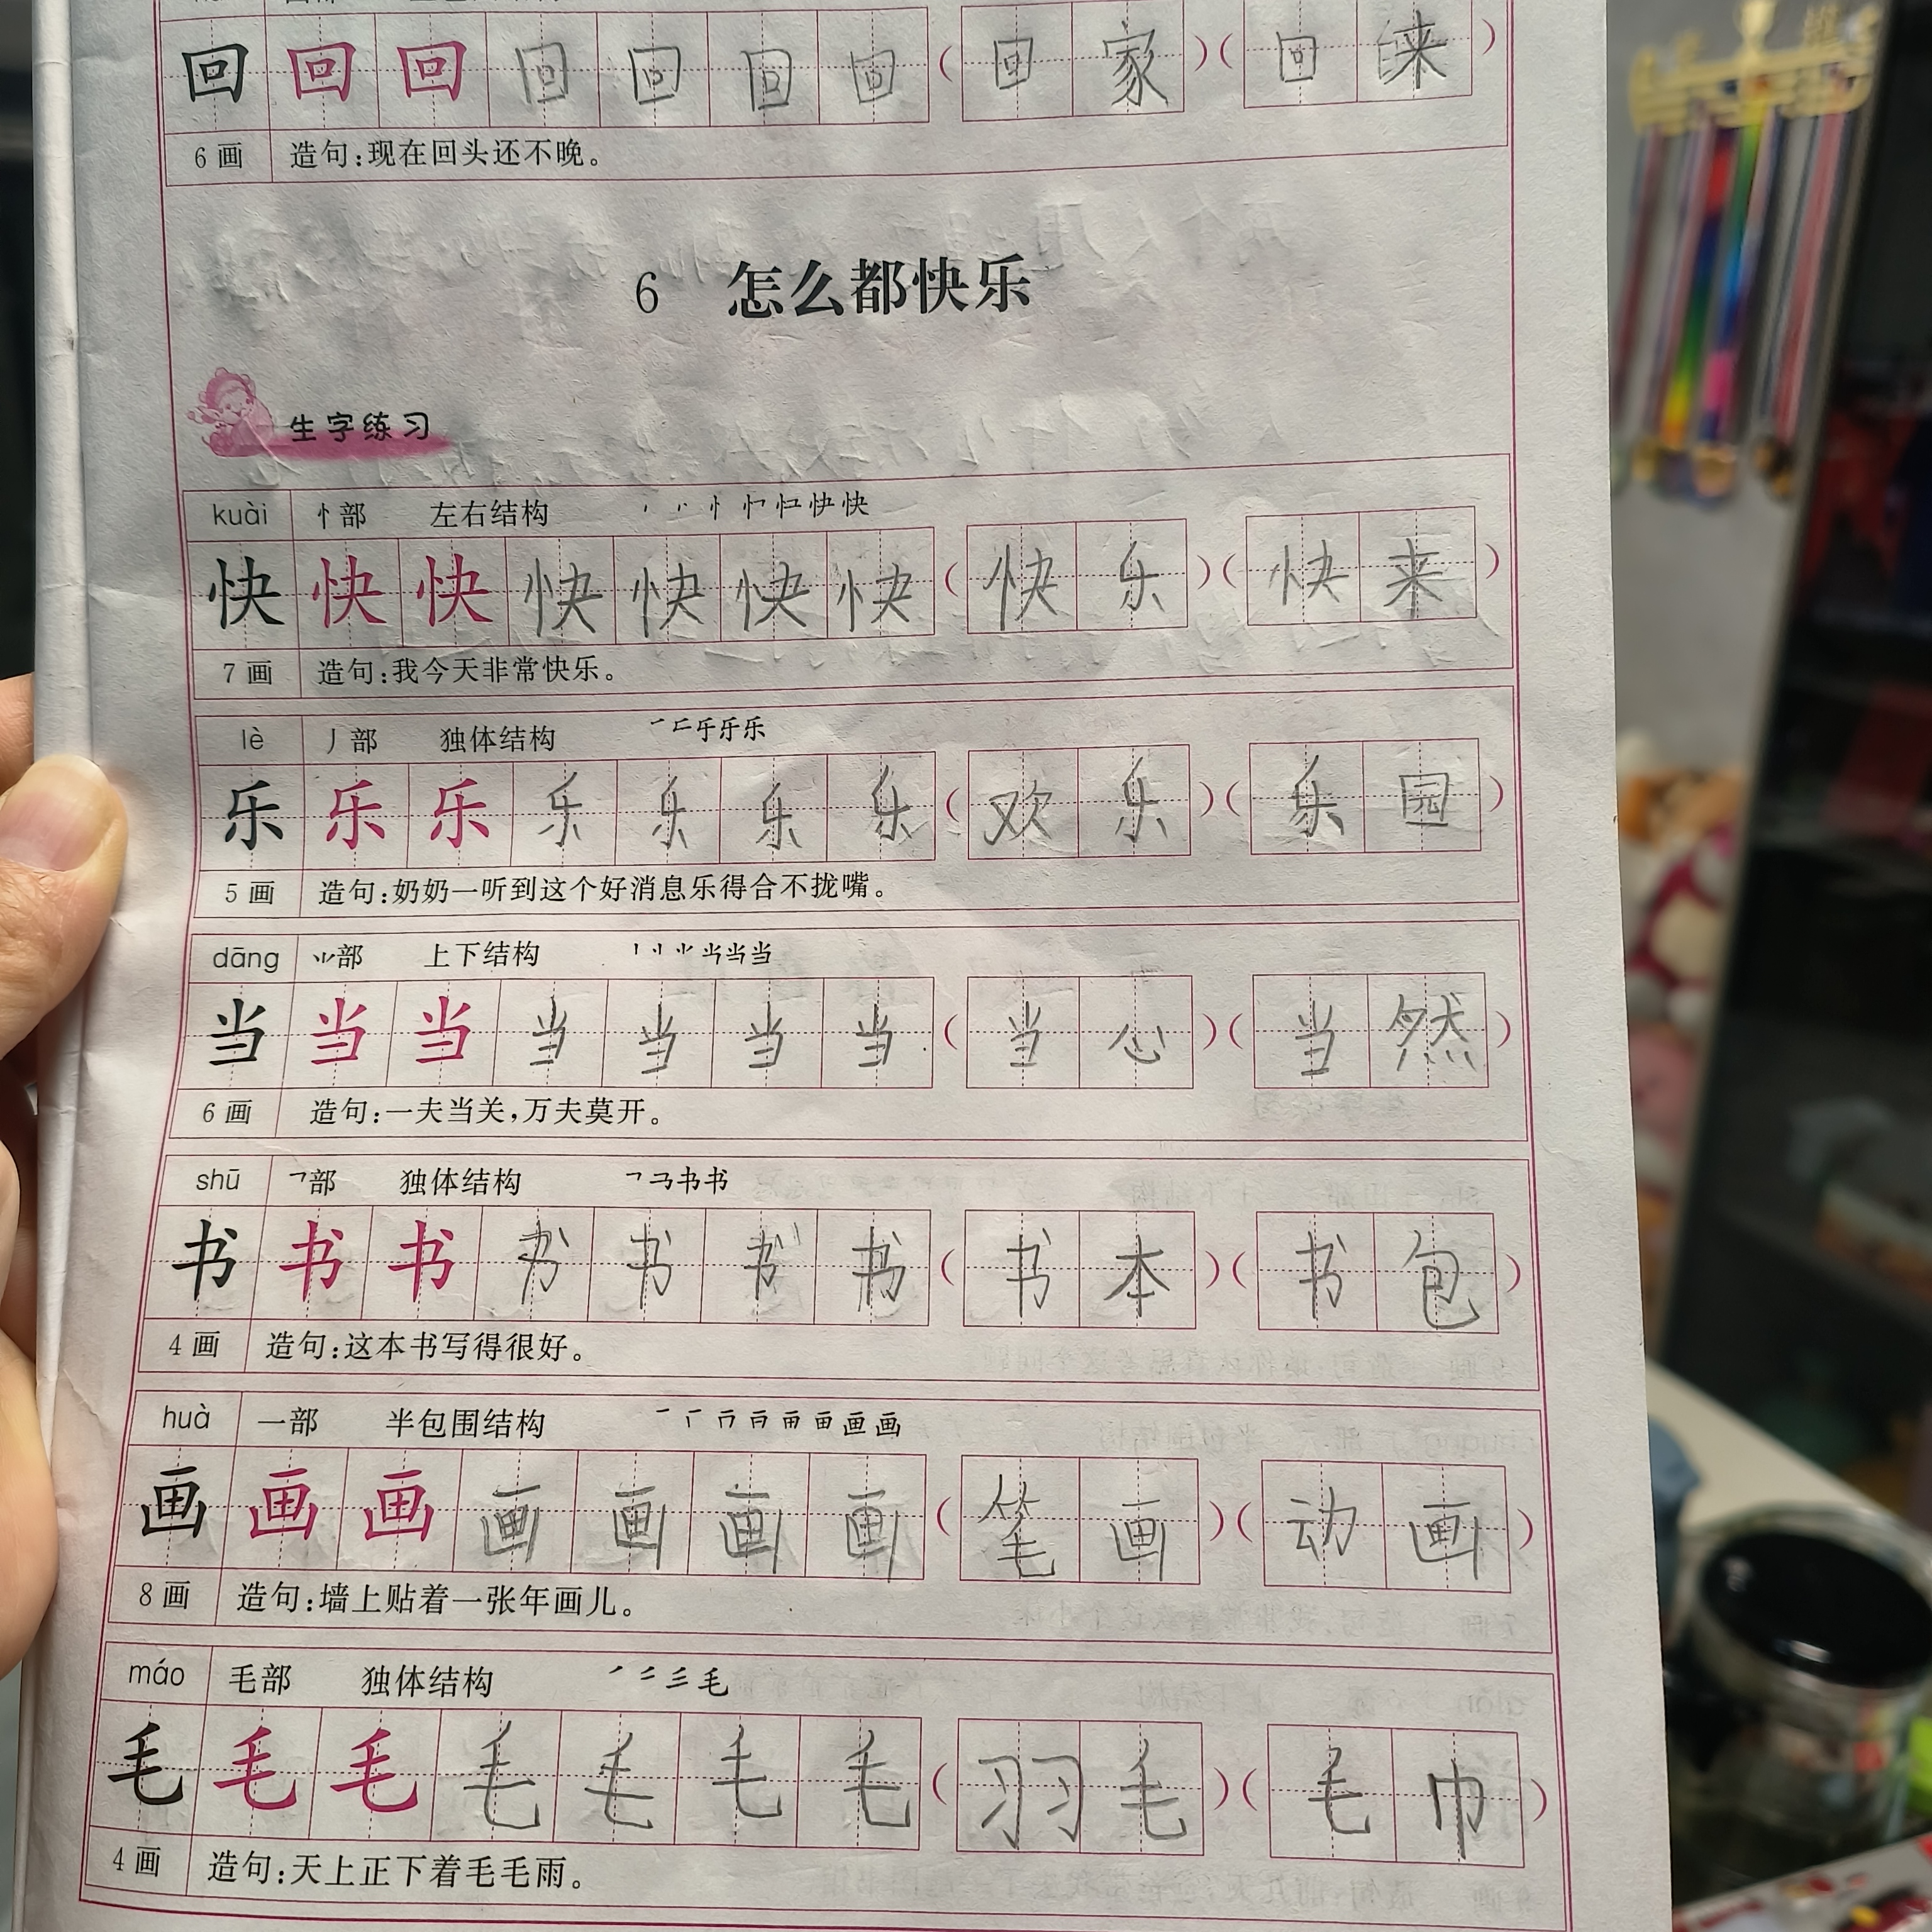 回 回 回 回 回 回 回 ( 回 家 ) ( 回 来 )
6画 造句:现在回头还不晚。
6 怎么都快乐
生字练习
kuài 忄部 左右结构
快 快 快 快 快 快 快 ( 快 乐 ) ( 快 来 )
7画 造句:我今天非常快乐。
lè 丿部 独体结构
乐 乐 乐 乐 乐 乐 乐 ( 欢 乐 ) ( 乐 园 )
5画 造句:奶奶一听到这个好消息乐得合不拢嘴。
dāng ⺌部 上下结构
当 当 当 当 当 当 当 ( 当 心 ) ( 当 然 )
6画 造句:一夫当关,万夫莫开。
shū 乛部 独体结构
书 书 书 书 书 书 书 ( 书 本 ) ( 书 包 )
4画 造句:这本书写得很好。
huà 一部 半包围结构
画 画 画 画 画 画 画 ( 笔 画 ) ( 动 画 )
8画 造句:墙上贴着一张年画儿。
máo 毛部 独体结构
毛 毛 毛 毛 毛 毛 毛 ( 羽 毛 ) ( 毛 巾 )
4画 造句:天上正下着毛毛雨。